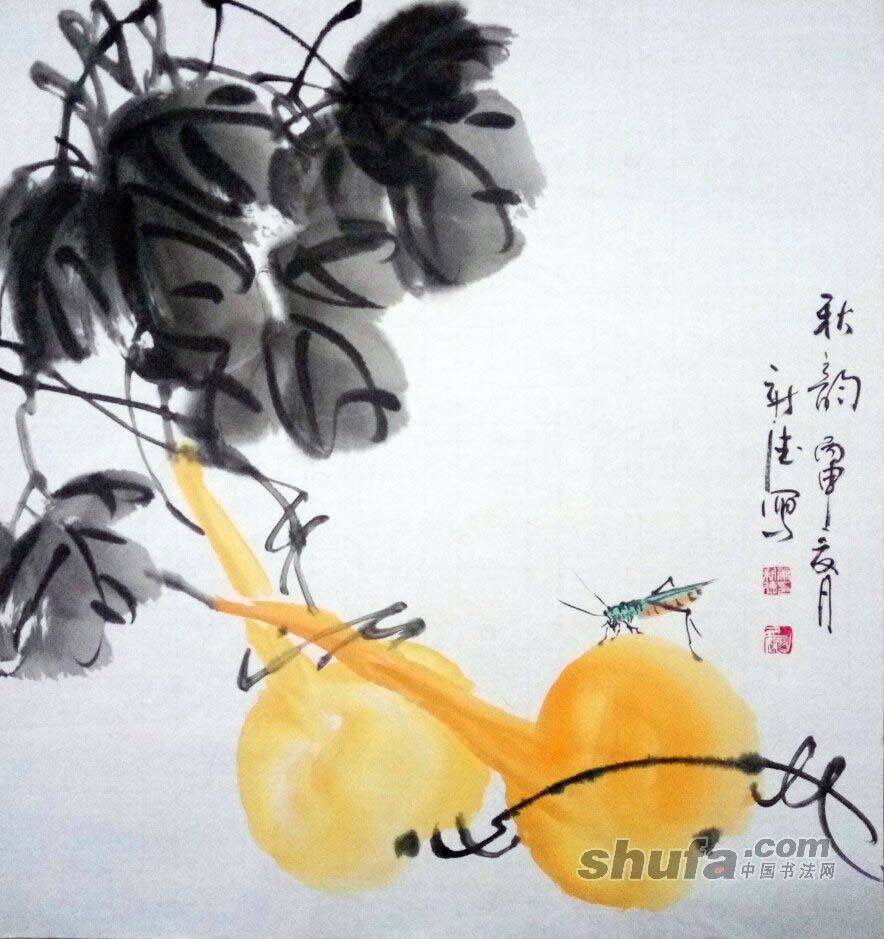 秋韵 丙申夏月
新德写
shufa.com
中国书法网